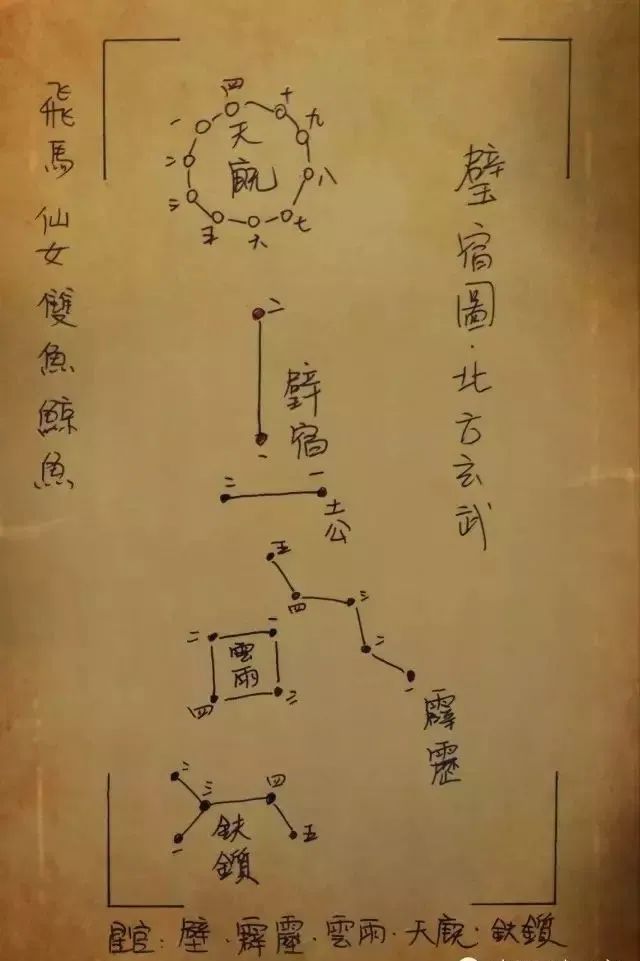 璧宿圖·北方玄武
飛馬 仙女 雙魚 鯨魚
四
十
九
八
七
六
五
三
二
一
天廐
二
一
壁宿
二
一
土公
五
四
三
二
一
霹靂
二
一
四
雲雨
二
三
四
一
五
鈇鑕
星官:壁·霹靂·雲雨·天廐·鈇鑕